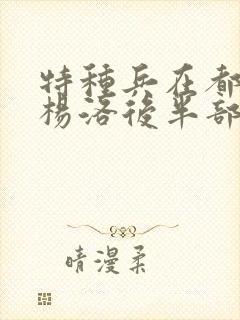 特種兵在都
楊洛後半部
晴漫柔